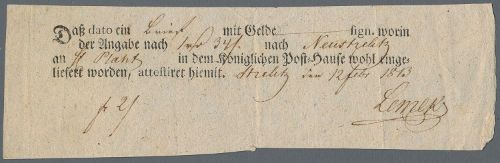 Daß dato ein Brief mit Gelde sign. worin
der Angabe nach nach Neustrelitz
an in dem Königlichen Post-Hause wohl einge-
liefert worden, attestiret hiemit. Strelitz den 12 febr 1813